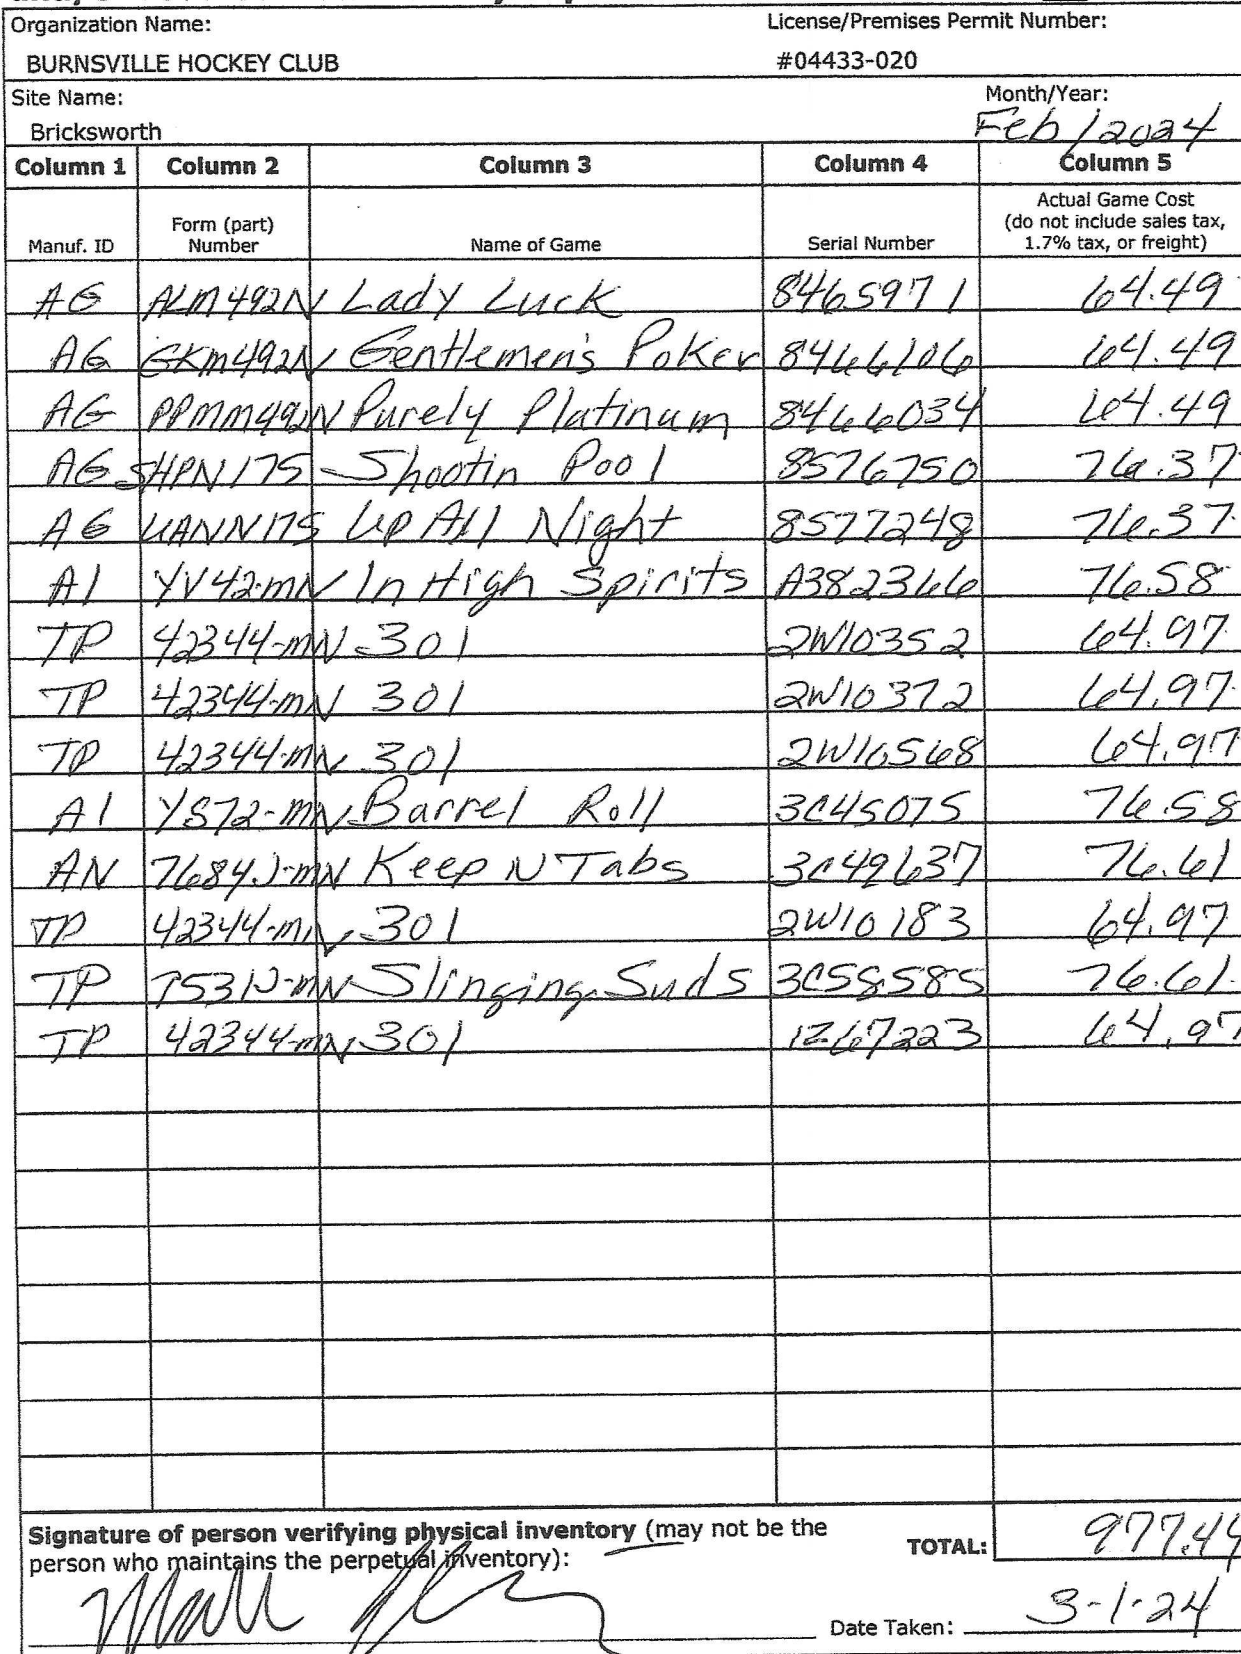 Organization Name: License/Premises Permit Number:
BURNSVILLE HOCKEY CLUB #04433-020
Site Name: Month/Year:
Bricksworth Feb/2024
Column 1 Column 2 Column 3 Column 4 Column 5
Manuf. ID Form (part) Number Name of Game Serial Number Actual Game Cost (do not include sales tax, 1.7% tax, or freight)
AG ALM492N Lady Luck 8465971 64.49
AG GKM492N Gentlemen's Poker 8466106 64.49
AG PPMM492N Purely Platinum 8466034 64.49
AG SHPN175 Shootin Pool 8576750 76.37
AG UANN175 Up All Night 8577248 76.37
AI YV42-MN In High Spirits A382366 76.58
TP 42344-MN 301 2W10352 64.97
TP 42344-MN 301 2W10372 64.97
TP 42344-MN 301 2W10568 64.97
AI YS72-MN Barrel Roll 3C45075 76.58
AN 7684J-MN Keep N Tabs 3C49637 76.61
TP 42344-MN 301 2W10183 64.97
TP 7531J-MN Slinging Suds 3C58585 76.61
TP 42344-MN 301 1Z67223 64.97
Signature of person verifying physical inventory (may not be the
person who maintains the perpetual inventory): TOTAL: 977.44
Date Taken: 3-1-24